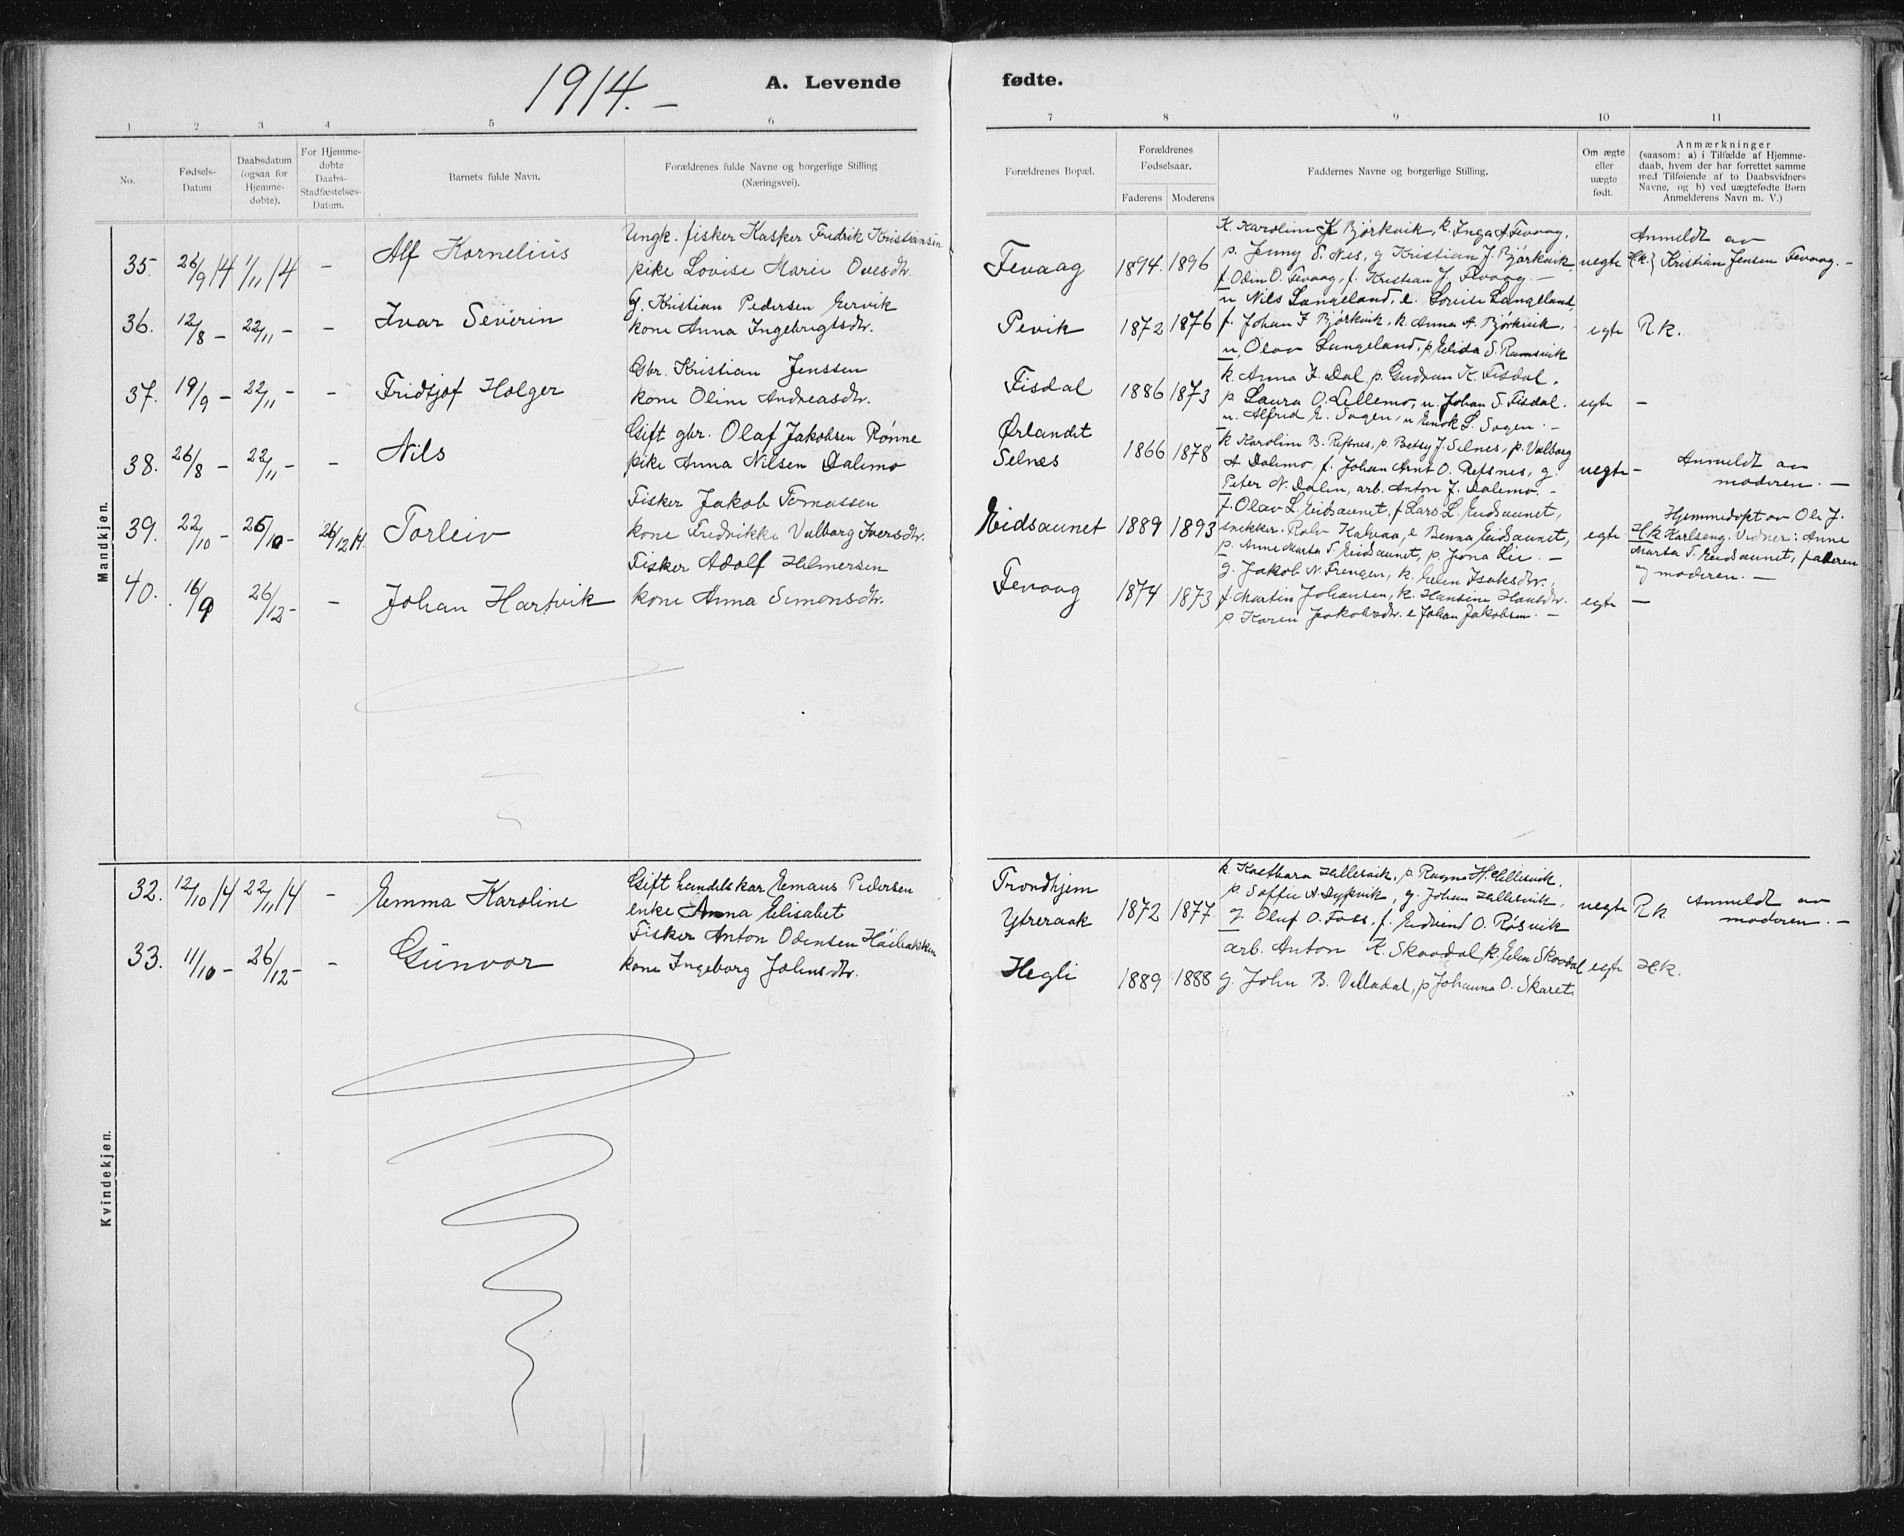 1914.-
A. Levende fødte.
1 2 3 4 5 6 7 8 9 10 11
No.
Fødsels-Datum
Daabsdatum (ogsaa for Hjemme-døbte).
For Hjemme-døbte Daabs-Stadfæstelses-Datum.
Barnets fulde Navn.
Forældrenes fulde Navne og borgerlige Stilling (Næringsvei).
Forældrenes Bopæl.
Forældrenes Fødselsaar.
Faderens Moderens
Faddernes Navne og borgerlige Stilling.
Om ægte eller uægte født.
Anmærkninger (saasom: a) i Tilfælde af Hjemme-daab, hvem der har forrettet samme med Tilføiende af to Daabsvidners Navne, og b) ved uægtefødte Børn Anmelderens Navn m. V.)
Mandkjøn.
35. 26/9 14 1/11 14 - Alf Kornelius
Ungk. fisker Kasper Fredrik Kristiansen
pike Lovise Marie Ovesdtr.
Fevaag 1894. 1896
K. Karoline K Bjørkvik, k. Inga A Fevaag,
p. Jenny S. Nes, g Kristian J. Bjørkvik,
f. Odin O. Fevaag, f. Kristian J. Fevaag. -
uegte
Anmeldt av
H.k.} Kristian Jensen Fevaag. -
36. 12/8 - 22/11 - - Ivar Severin
G. Kristian Pedersen Gervik
kone Anna Ingebrigtsdtr.
Pevik 1872 1876
u Nils Langeland, e. Lovise Langeland,
f. Johan F Bjørkvik, k. Anna A. Bjørkvik,
u, Olav Langeland, p. Elida S. Ramsvik
egte R.k.
37. 19/9 - 22/11 - - Fridtjof Holger
Gbr. Kristian Jenssen
kone Oline Andreasdtr.
Fisdal 1886 1873
k. Anna J. Dal p. Gudrun K. Fisdal.
p Laura O. Lillemo, u. Johan S. Fisdal.
u. Alfred E. Sagen, u Enok L. Sagen. -
egte -
38. 26/8 - 22/11 - - Nils
Gift gbr. Olaf Jakobsen Rønne
pike Anna Nilsen Dalemo
Ørlandet
Selnes 1866 1878
k Karoline B. Refsnes, p. Betsy J. Selnes, p. Valborg
A Dalemo, f. Johan Arnt O. Refsnes, g.
Peter N. Dalen, arb. Anton J. Dalemo. -
uegte -
Anmeldt av
moderen. -
39. 22/10 - 25/10 - 26/12 14. Torleiv
Fisker Jakob Tomassen
kone Fredrikke Valborg Iversdtr.
Eidsaunet 1889 1893
f. Olav L. Eidsaunet, f Lars L. Eidsaunet,
snekker. Rolv Kalvaa, e Benna Eidsaunet,
p. Anne Marta T. Eidsaunet, p. Jona Lie. -
egte
Hjemmedøpt av Ole J.
H.k Karlseng. Vidner: Anne
Marta T. Eidsaunet, faderen
og moderen. -
40. 16/9 26/12 - - Johan Hartvik
Fisker Adolf Hilmersen
kone Anna Simonsdtr.
Fevaag 1874 1873
g. Jakob N. Frengen, k. Elen Isaksdtr.,
f. Martin Johansen, k. Hansine Hansdtr.
p Karen Jakobsdtr. e Johan Jakobsen. -
egte -
Kvindekjøn.
32. 12/10 14 22/11 14 - Emma Karoline
Gift handelskar Emaus Pedersen
enke Anna Elisabet
Trondhjem
Ytreraak 1872 1877
k. Kasthara Hellesvik, p. Ragna H. Hellesvik.
p. Soffie A Dypvik, g. Johan Hellesvik,
g. Oluf O. Foss, f. Eidvind O. Røsvik
uegte R.k
Anmeldt av
moderen. -
33. 11/10 - 26/12 - - Gunvor
Fisker Anton Odensen Høibakken
kone Ingeborg Johnsdtr.
Hegli 1889 1888
arb. Anton K. Skavdal, k. Elen Skavdal
g. John B. Velladal, p Johanna O. Skaret.
egte H.k.